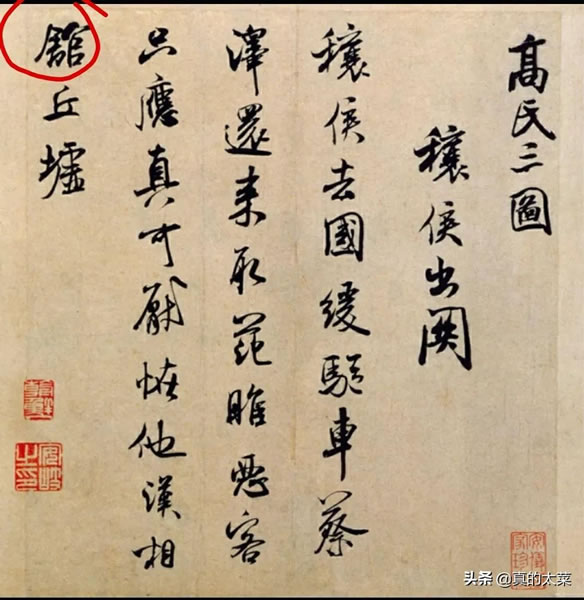 髙氏三圖
穰侯出関
穰侯去國緩驅車蔡
澤還来取范睢惡客
只應真可厭恠他漢相
舘丘墟
头条 @真的太菜